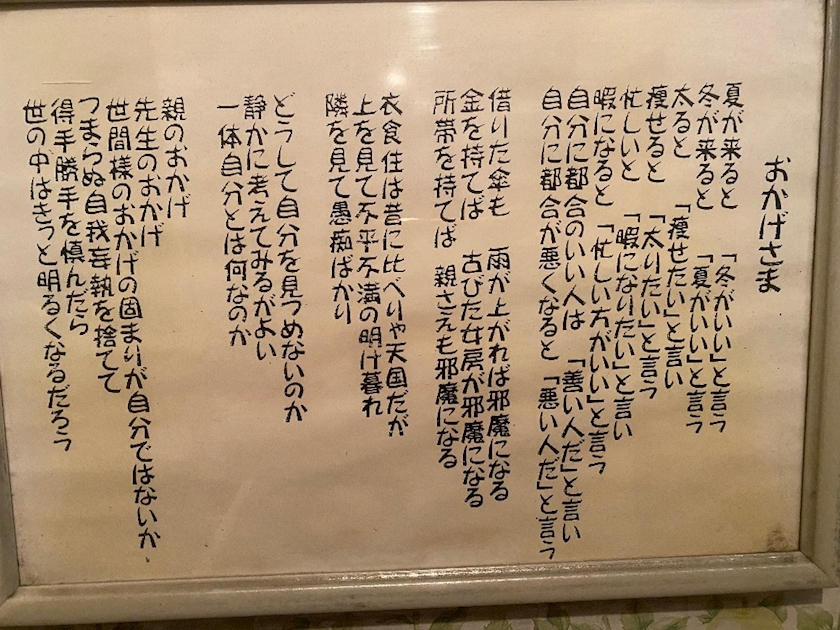 おかげさま
夏が来ると 「冬がいい」と言う
冬が来ると 「夏がいい」と言う
太ると 「痩せたい」と言い
痩せると 「太りたい」と言う
忙しいと 「暇になりたい」と言い
暇になると 「忙しい方がいい」と言う
自分に都合のいい人は 「善い人だ」と言い
自分に都合が悪くなると 「悪い人だ」と言う
借りた傘も 雨が上がれば邪魔になる
金を持てば 古びた女房が邪魔になる
所帯を持てば 親さえも邪魔になる
衣食住は昔に比べりゃ天国だが
上を見て不平不満の明け暮れ
隣を見て愚痴ばかり
どうして自分を見つめないのか
静かに考えてみるがよい
一体自分とは何なのか
親のおかげ
先生のおかげ
世間様のおかげの固まりが自分ではないか、
つまらぬ自我妄執を捨てて
得手勝手を慎んだら
世の中はきっと明るくなるだろう